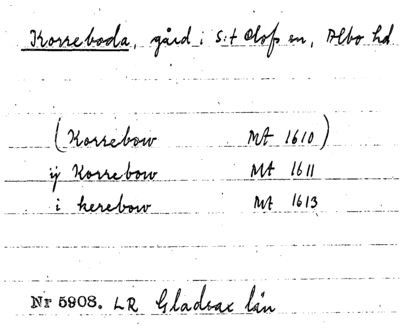 Korreboda, gård i S:t Olofs sn, Albo hd
(Korrebow MA 1610)
ij Korrebow MA 1611
i kerebow MA 1613
Nr 5908. LR Gladsax län